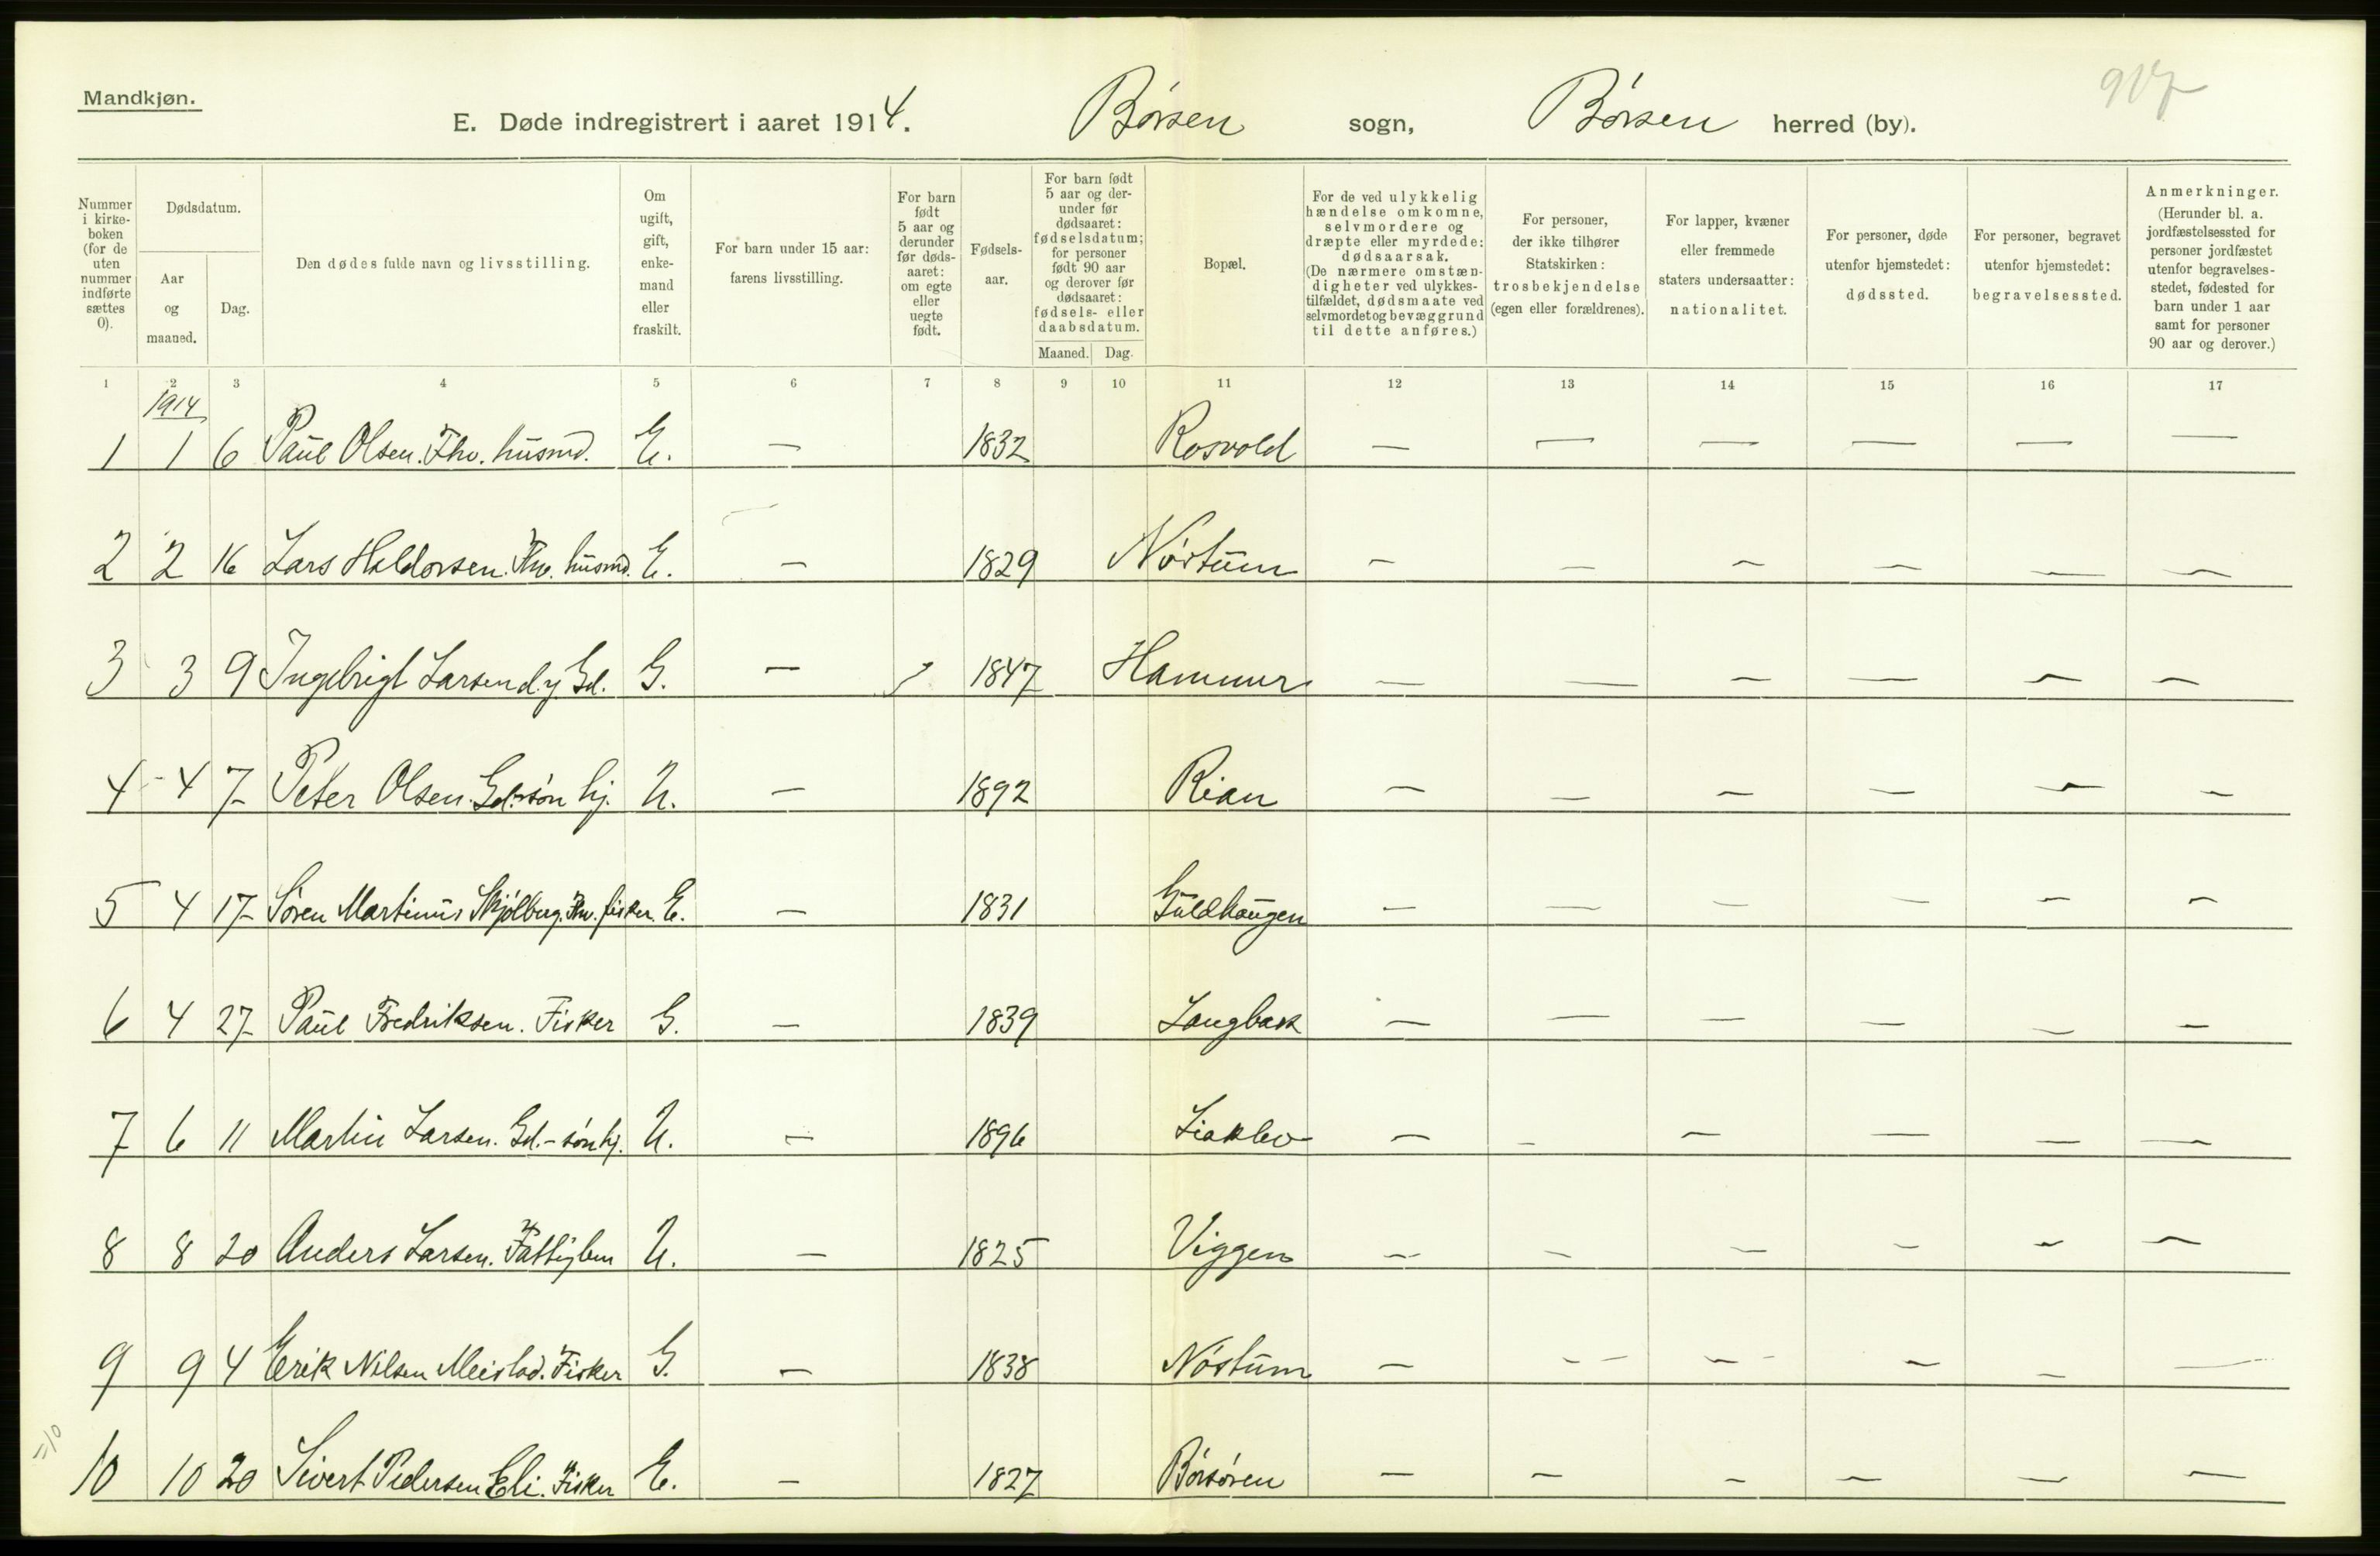 Mandkjøn.
E. Døde indregistrert i aaret 1914. Børsen sogn, Børsen herred (by).
917
Nummer i kirkeboken (for de uten nummer indførte sættes 0).
Dødsdatum.
Aar og maaned.
Dag.
Den dødes fulde navn og livsstilling.
Om ugift, gift, enkemand eller fraskilt.
For barn under 15 aar: farens livsstilling.
For barn født 5 aar og derunder før dødsaaret: om egte eller uegte født.
Fødselsaar.
For barn født 5 aar og derunder før dødsaaret: fødselsdatum; for personer født 90 aar og derover før dødsaaret: fødsels- eller daabsdatum.
Maaned. Dag.
Bopæl.
For de ved ulykkelig hændelse omkomne, selvmordere og dræpte eller myrdede: dødsaarsak. (De nærmere omstændigheter ved ulykkestilfældet, dødsmaate ved selvmordet og bevæggrund til dette anføres.)
For personer, der ikke tilhører Statskirken: trosbekjendelse (egen eller forældrenes).
For lapper, kvæner eller fremmede staters undersaatter: nationalitet.
For personer, døde utenfor hjemstedet: dødssted.
For personer, begravet utenfor hjemstedet: begravelsessted.
Anmerkninger. (Herunder bl. a. jordfæstelsessted for personer jordfæstet utenfor begravelsesstedet, fødested for barn under 1 aar samt for personer 90 aar og derover.)
1 2 3 4 5 6 7 8 9 10 11 12 13 14 15 16 17
1914
1 1 6 Paul Olsen. Fhv. husmd. E. — 1832 Rosvold — — — — — —
2 2 16 Lars Haldorsen. Fhv. husmd. E. — 1829 Nøstum — — — — — —
3 3 9 Ingebrigt Larsen d.y. Gd. G. — 1847 Hammer — — — — — —
4 4 7 Peter Olsen. Gd.-søn hj. U. — 1892 Rian — — — — — —
5 4 17 Søren Martinus Skjølberg. Fhv. fisker. E. — 1831 Guldhaugen — — — — — —
6 4 27 Paul Fredriksen. Fisker G. — 1839 Langbak — — — — — —
7 6 11 Martin Larsen. Gd.-søn hj. U. — 1896 Liaklev — — — — — —
8 8 20 Anders Larsen. Fattiglem U. — 1825 Viggen — — — — — —
9 9 4 Erik Nilsen Meistad. Fisker G. — 1838 Nøstum — — — — — —
=10
10 10 20 Sivert Pedersen Eli. Fisker E. — 1827 Børsøren — — — — — —